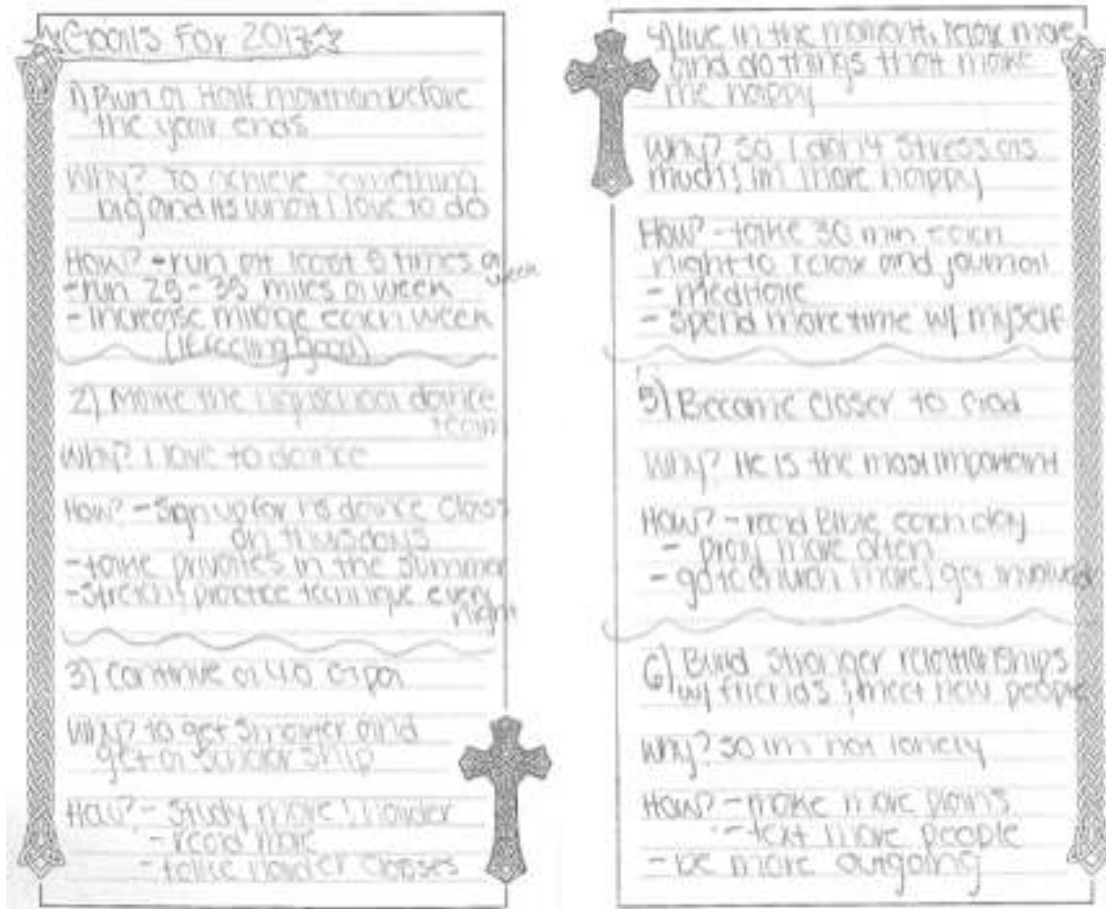 ☆Goals For 2017☆
1) Run a Half marthon before
the year ends
Why? To achieve something
big and its what I love to do
How? - run at least 5 times a
week
- run 25-35 miles a week
- Increase milage each week
(If feeling good)
2) Make the highschool dance
team
Why? I love to dance
How? - Sign up for hs dance class
on thursdays
- take privates in the summer
- Stretch & practice technique every
night
3) Continue a 4.0 Gpa
Why? to get smarter and
get a scholarship
How? - Study more & harder
- read more
- take harder classes
4) live in the moment, relax more
and do things that make
me happy
Why? So I don't stress as
much & im more happy
How? - take 30 min each
night to relax and journal
- meditate
- Spend more time w/ myself
5) Become closer to God
Why? He is the most important
How? - read Bible each day
- pray more often
- go to church more & get involved
6) Build stronger relationships
w/ friends & meet new people
Why? so im not lonely
How? - make more plans
- text more people
- be more outgoing